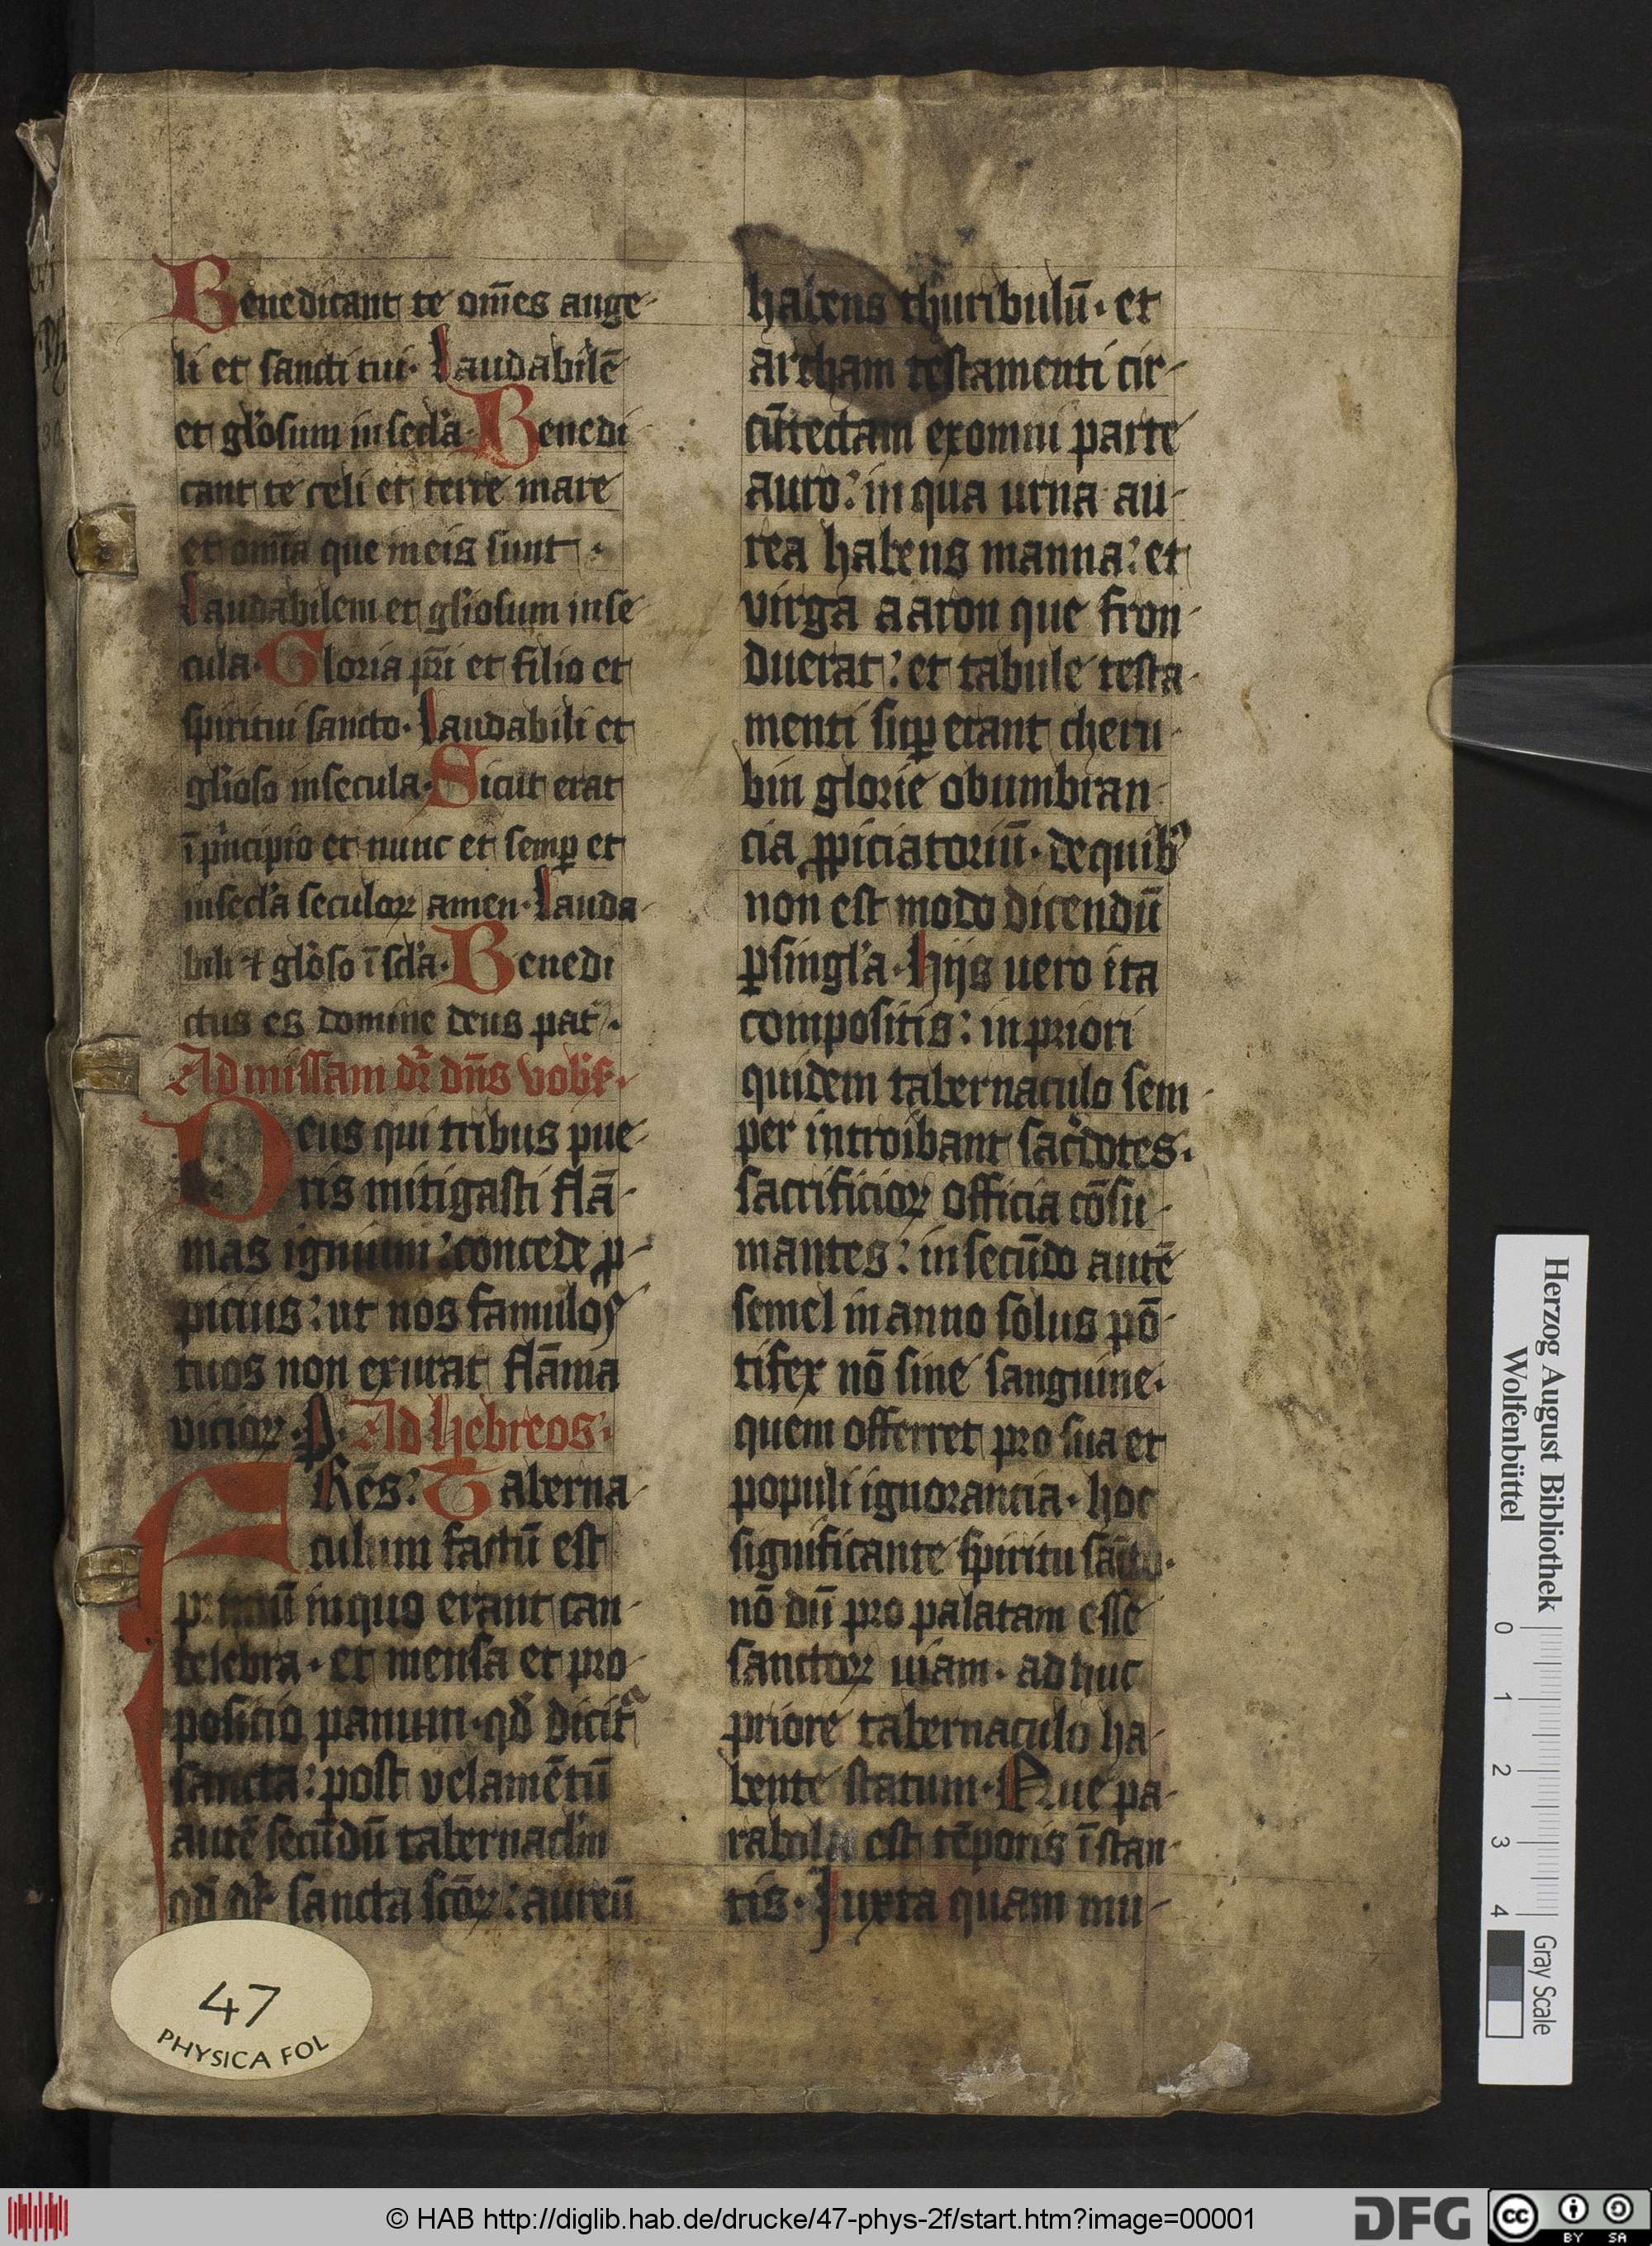 Benedicant te om̄es ange-
li et sancti tui. Laudabilē
et gl'osum in secl'a. Benedi
cant te celi et terre mare
et om̄ia que in eis sunt.
Laudabilem et gl'iosum in se-
cula. Gloria pr̄i et filio et
spiritui sancto. Laudabili et
gl'ioso in secula. Sicut erat
ī p'ncipio et nunc et semꝑ et
in secl'a seculoꝝ amen. Lauda-
bili ⁊ gl'oso ī scl'a. Benedi
ctus es domine deus pat'.
Ad missam dr̄ dn̄s vob'.
Deus qui tribus pue-
ris mitigasti flā-
mas ignium: concede ꝓ-
picius: ut nos famulos
tuos non exurat flāma
vicioꝝ. P. Ad hebreos.
FRēs: Taberna-
culum factū est
primū in quo erant can-
delebra. et mensa et pro-
posicio panum. qd̄ dicit
sancta: post velamētū
autē secūdū tabernacl'm
qd̄ dr̄ sancta scōꝝ: aureū
habens thuribulū. et
archam testamenti cir-
cūtectam ex omni parte
auro: in qua urna au-
rea habens manna: et
virga aaron que fron-
duerat: et tabule testa-
menti suꝑ erant cheru-
bin glorie obumbran-
cia ꝓpiciatoriū. de quib9
non est modo dicendū
ꝑ singl'a. hijs uero ita
compositis: in priori
quidem tabernaculo sem-
per introibant sac'dotes.
sacrificioꝝ officia cōsu-
mantes: in secūdo autē
semel in anno solus pō-
tifex nō sine sanguine.
quem offerret pro sua et
populi ignorancia. hoc
significante spiritu sācto.
nō dū pro palatam esse
sanctoꝝ uiam. ad huc
priore tabernaculo ha-
bente statum. Que pa-
rabola est tēporis īstan-
tis. Iuxta quam mu-
47
PHYSICA FOL
Herzog August Bibliothek
Wolfenbüttel
0 1 2 3 4
Gray Scale
© HAB http://diglib.hab.de/drucke/47-phys-2f/start.htm?image=00001
DFG
cc BY SA